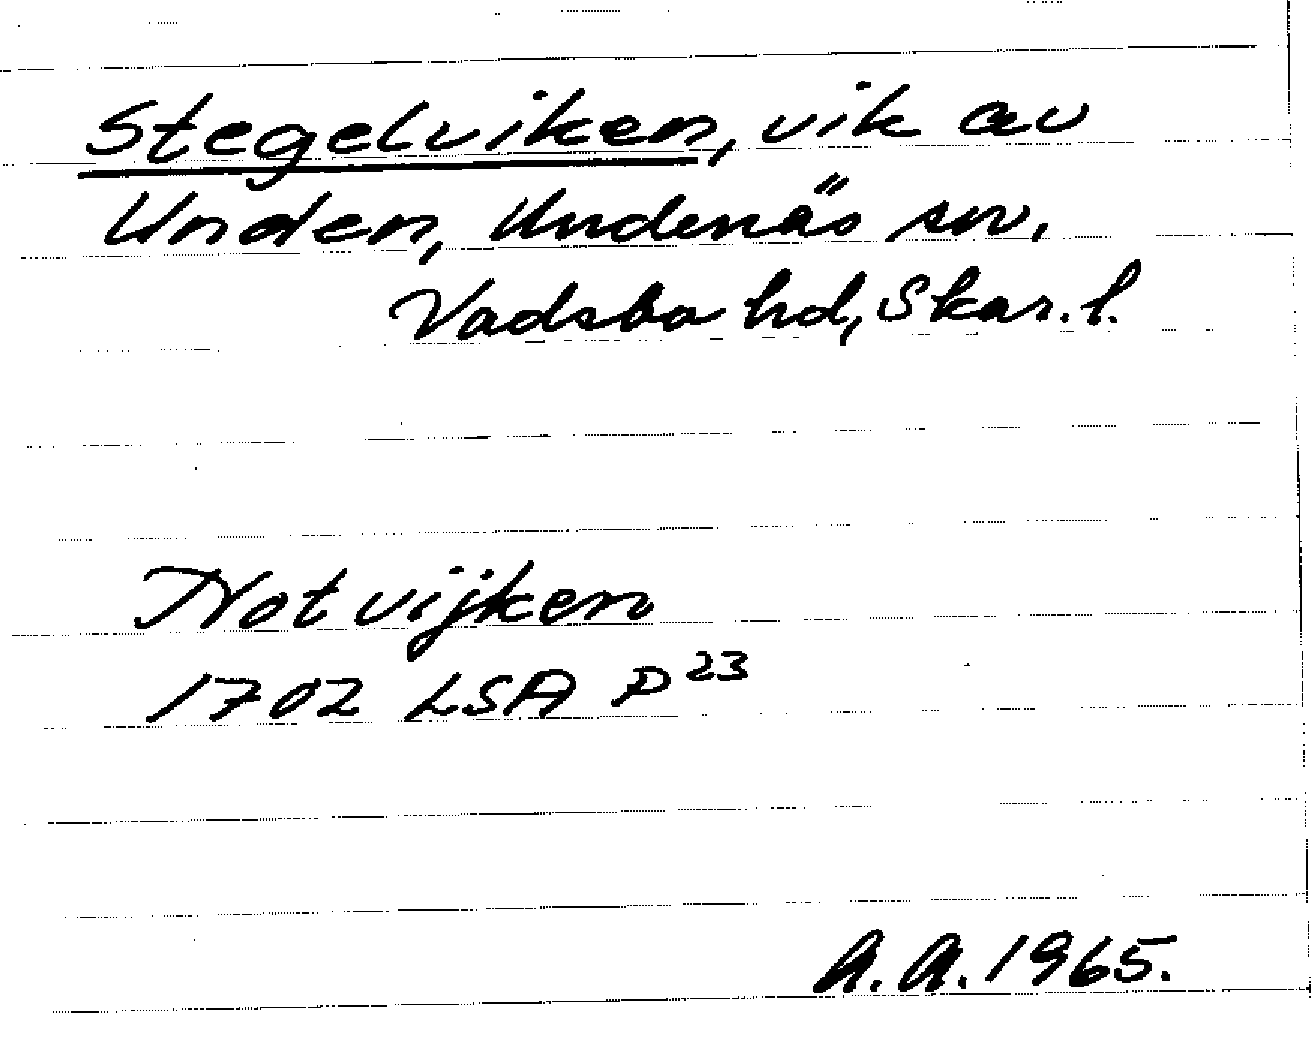 Stegelviken, vik av
Unden, Undenäs sn.
Vadsbo hd, Skar. l.
Notvijken
1702 LSA P 23
A.A. 1965.